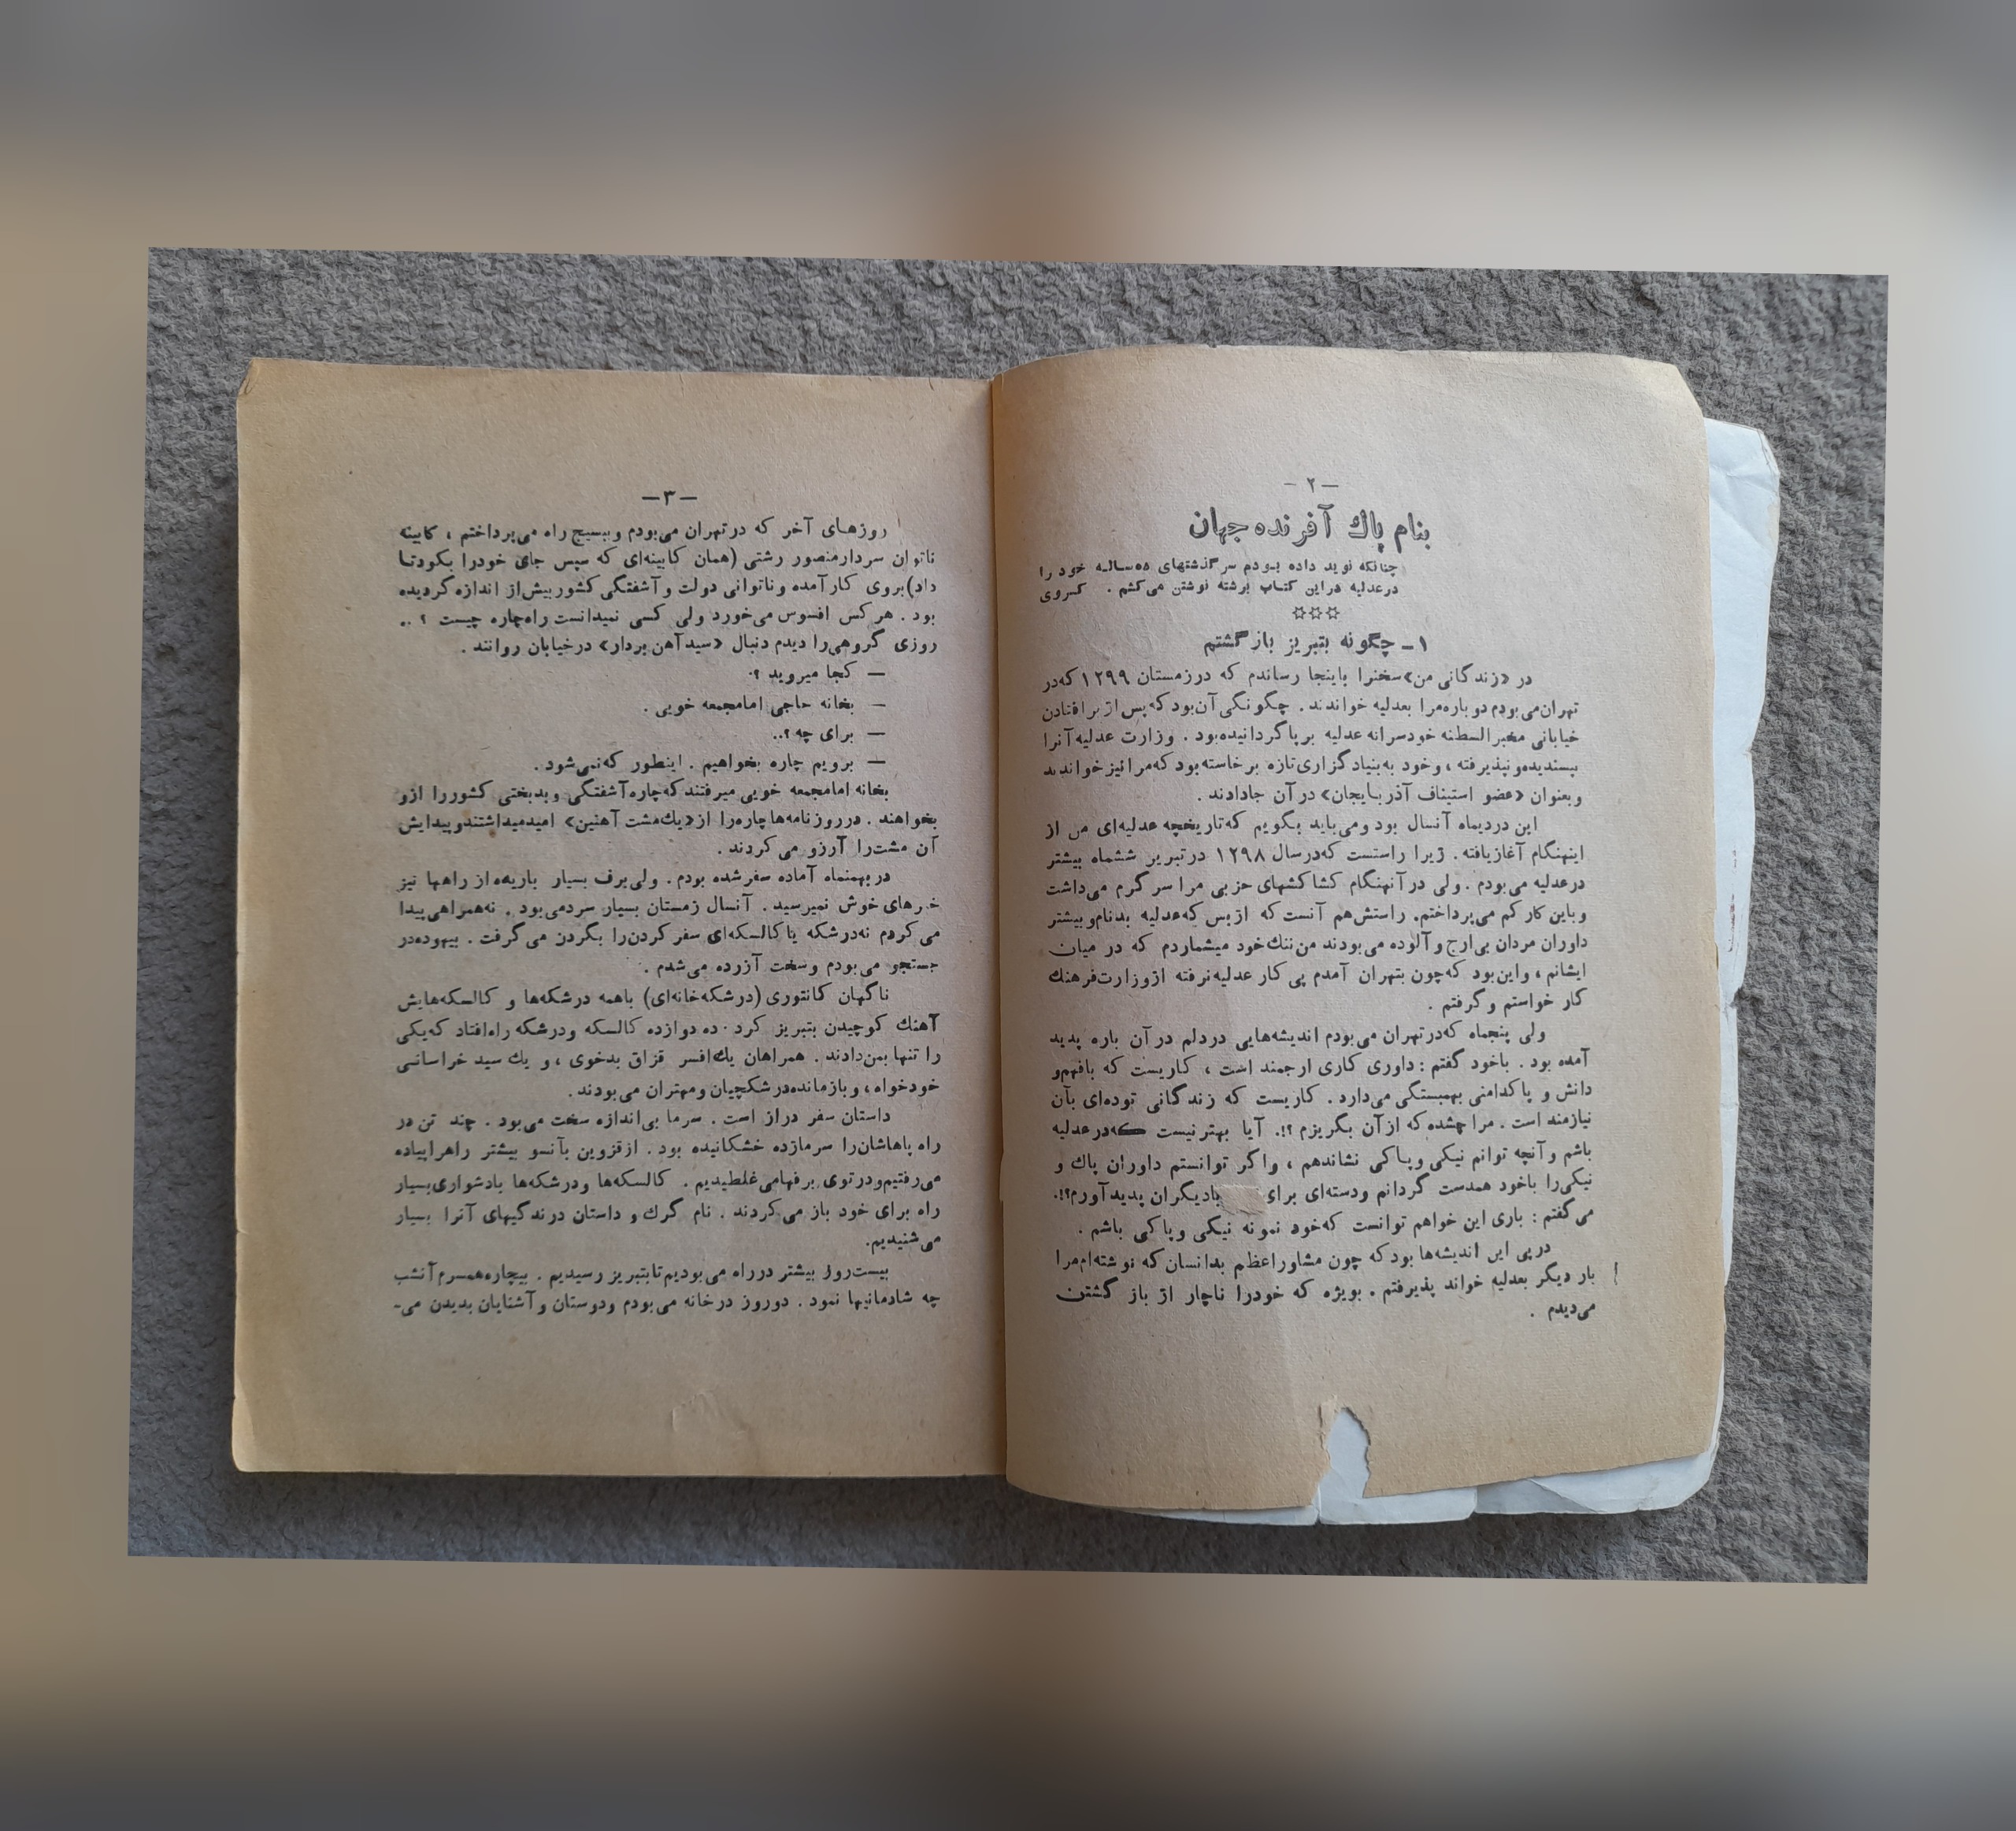 — ۲ —
بنام پاك آفرنده جهان
چنانکه نوید داده بودم سرگذشتهای ده‌ساله خود را
درعدلیه دراین کتاب برشته نوشتن می‌کشم . کسروی
☆☆☆
۱ـ چگونه بتبریز بازگشتم
در «زندگانی من» سخنرا باینجا رساندم که درزمستان ۱۲۹۹ که‌در
تهران‌می‌بودم دوباره‌مرا بعدلیه خواندند . چگونگی آن‌بود که‌پس از برافتادن
خیابانی مخبرالسطنه خودسرانه عدلیه برپا گردانیده‌بود . وزارت عدلیه آنرا
نپسندیده‌و نپذیرفته ، وخود به‌بنیادگزاری‌تازه برخاسته‌بود که‌مرانیز خواندند
وبعنوان «عضو استیناف آذربایجان» درآن جادادند .
این دردیماه آنسال بود ومی‌باید بگویم که‌تاریخچه عدلیه‌ای من از
اینهنگام آغازیافته . زیرا راستست که‌درسال ۱۲۹۸ درتبریز ششماه بیشتر
درعدلیه می‌بودم . ولی درآنهنگام کشاکشهای حزبی مرا سرگرم می‌داشت
وباین کار کم می‌پرداختم. راستش‌هم آنست که ازبس که‌عدلیه بدنام‌و بیشتر
داوران مردان بی‌ارج و آلوده می‌بودند من‌ننك‌خود میشماردم که در میان
ایشانم ، واین‌بود که‌چون بتهران آمدم پی کار عدلیه‌نرفته ازوزارت‌فرهنك
کار خواستم و گرفتم .
ولی پنجماه که‌درتهران می‌بودم اندیشه‌هایی دردلم درآن باره پدید
آمده بود . باخود گفتم : داوری کاری ارجمند است ، کاریست که بافهم‌و
دانش و پاکدامنی بهمبستگی می‌دارد . کاریست که زندگانی توده‌ای بآن
نیازمند است . مرا چشده که ازآن بگریزم ؟!. آیا بهتر نیست که‌درعدلیه
باشم و آنچه توانم نیکی وپاکی نشاندهم ، واگر توانستم داوران پاك و
نیکی‌را باخود همدست گردانم ودسته‌ای برای بادیگران پدیدآورم؟!.
می‌گفتم : باری این خواهم توانست که‌خود نمونه نیکی وپاکی باشم .
درپی این اندیشه‌ها بود که چون مشاوراعظم بدانسان که نوشته‌ام‌مرا
بار دیگر بعدلیه خواند پذیرفتم . بویژه که خودرا ناچار از باز گشتن
می‌دیدم .
—۳—
روزهای آخر که درتهران می‌بودم وبسیج راه می‌پرداختم ، کابینه
ناتوان سردارمنصور رشتی (همان کابینه‌ای که سپس جای خودرا بکودتا
داد) بروی کارآمده وناتوانی دولت و آشفتگی کشور بیش‌از اندازه گردیده
بود . هرکس افسوس می‌خورد ولی کسی نمیدانست راه‌چاره چیست ؟ ..
روزی گروهی‌را دیدم دنبال «سیدآهن بردار» درخیابان روانند .
— کجا میروید ؟.
— بخانه حاجی امامجمعه خویی .
— برای چه ؟..
— برویم چاره بخواهیم . اینطور که‌نمی‌شود .
بخانه امامجمعه خویی میرفتند که‌چاره آشفتگی و بدبختی کشوررا ازو
بخواهند . درروزنامه‌ها چاره‌را از «یك‌مشت آهنین» امیدمیداشتندو پیدایش
آن مشت‌را آرزو می‌کردند .
دربهمنماه آماده سفرشده بودم . ولی‌برف بسیار باریده از راهها نیز
خبرهای خوش نمیرسید . آنسال زمستان بسیار سردمی‌بود . نه‌همراهی‌پیدا
می‌کردم نه‌درشکه یا کالسکه‌ای سفرکردن‌را بگردن می‌گرفت . بیهوده‌در
جستجو می‌بودم وسخت آزرده می‌شدم .
ناگهان کانتوری (درشکه‌خانه‌ای) باهمه درشکه‌ها و کالسکه‌هایش
آهنك کوچیدن بتبریز کرد . ده دوازده کالسکه ودرشکه راه‌افتاد که‌یکی
را تنها بمن‌دادند . همراهان یك‌افسر قزاق بدخوی ، و یك سید خراسانی
خودخواه ، و بازمانده‌درشکچیان ومهتران می‌بودند .
داستان سفر دراز است . سرما بی‌اندازه سخت می‌بود . چند تن در
راه پاهاشان‌را سرمازده خشکانیده بود . ازقزوین بآنسو بیشتر راهراپیاده
می‌رفتیم‌ودرتوی برفهامی‌غلطیدیم . کالسکه‌ها ودرشکه‌ها بادشواری‌بسیار
راه برای خود باز می‌کردند . نام گرك و داستان درندگیهای آنرا بسیار
می‌شنیدیم.
بیست‌روز بیشتر درراه می‌بودیم تابتبریز رسیدیم . بیچاره‌همسرم آنشب
چه شادمانیها نمود . دوروز درخانه می‌بودم ودوستان و آشنایان بدیدن می‌-